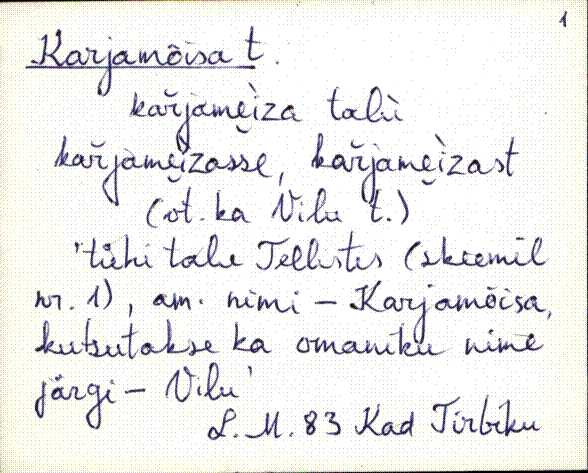 1
Karjamõisa t.
kař̀jamẹìza talù
kař̀jamẹìzasse, kař̀jamẹìzast
(öt. ka Vilu t.)
'tühi talu Tellistes (skeemil
nr. 1), am. nimi – Karjamõisa,
kutsutakse ka omaniku nime
järgi – Vilu'
L. M. 83 Kad Tirbiku